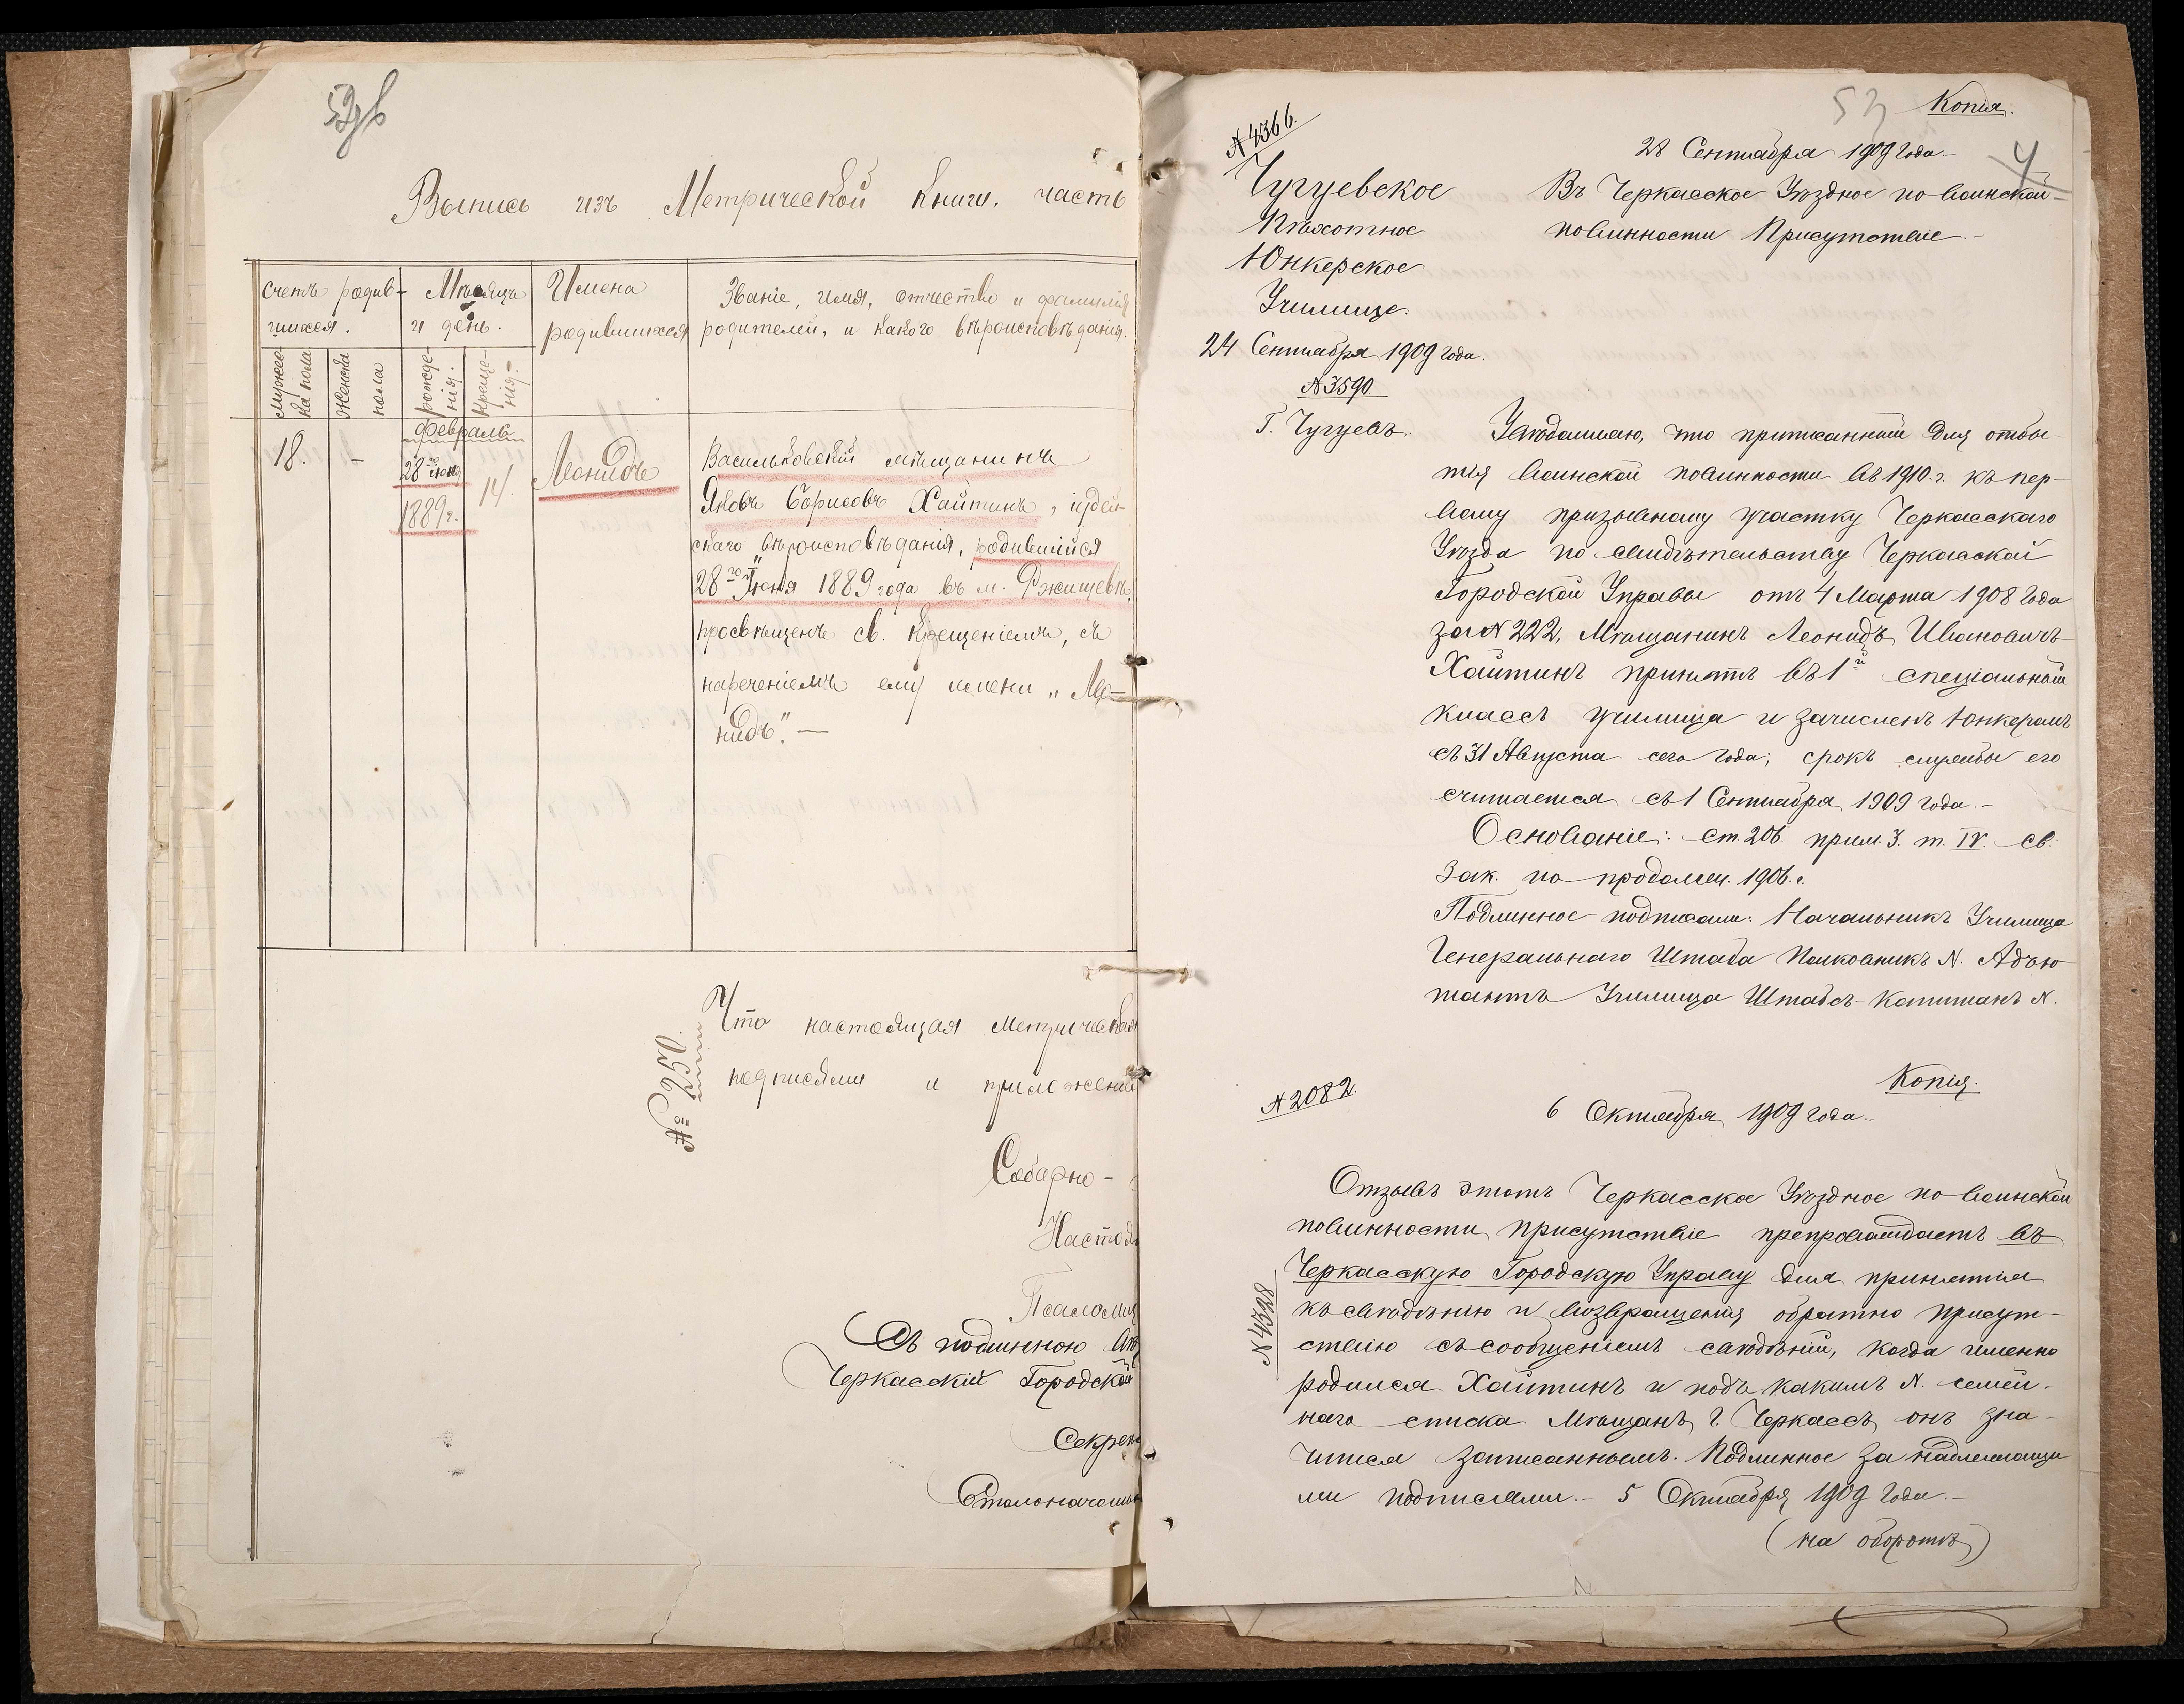 52об
Выпись изъ Метрической книги, часть
Счетъ родив-
шихся.
Мѣсяцъ
и день.
Имена
родившихся
Званіе, имя, отчество и фамилія
родителей, и какого вѣроисповѣданія.
Мужес-
ка пола
Женска
пола
рожде-
нія.
креще-
нія.
Февраль
18.
-
28го Іюня
1889 г.
14.
Леонидъ
Васильковскій мѣщанинъ
Яковъ Борисовъ Хайтинъ, іудей-
скаго вѣроисповѣданія, родившійся
28го Іюня 1889 года въ м. Ржищевѣ,
просвѣщенъ св. Крещеніемъ, съ
нареченіемъ ему имени „Лео-
нидъ". —
Что настоящая метрическая
подписями и приложені
Соборно-
Настоя
Псаломщ
Съ подлинною
Черкасскій Городской
Секрет
Столоначаль
53
Копія.
4
N 4366.
28 Сентября 1909 года
Чугуевское
Пѣхотное
Юнкерское
Училище.
24 Сентября 1909 года.
N 3590
Г. Чугуевъ.
Въ Черкасское Уѣздное по воинской
повинности Присутствіе.
Увѣдомляю, что приписанный для отбы-
тія воинской повинности въ 1910 г. къ пер-
вому призывному участку Черкасскаго
Уѣзда по свидѣтельству Черкасской
Городской Управы отъ 4 Марта 1908 года
за N 222, Мѣщанинъ Леонидъ Ивановичъ
Хайтинъ принятъ въ 1й спеціальный
классъ училища и зачисленъ Юнкеромъ
съ 31 Августа сего года; срокъ службы его
считается съ 1 Сентября 1909 года.-
Основаніе: ст. 206 прим. 3. т. IV. Св.
Зак. по продолж. 1906 г.
Подлинное подписали: Начальникъ Училища
Генеральнаго Штаба Полковникъ N. Адъю-
тантъ Училища Штабсъ-Капитанъ N.
Копія.
N 2082.
6 Октября 1909 года.
Отзывъ этотъ Черкасское Уѣздное по воинской
повинности Присутствіе препровождаетъ въ
Черкасскую Городскую Управу для принятія
N 4328
къ свѣдѣнію и возвращенія обратно Присут-
ствію съ сообщеніемъ свѣдѣній, когда именно
родился Хайтинъ и подъ какимъ N. семей-
наго списка Мѣщанъ г. Черкассъ онъ зна-
чится записаннымъ. Подлинное за надлежащи
ми подписями.- 5 Октября 1909 года.-
(на оборотѣ)